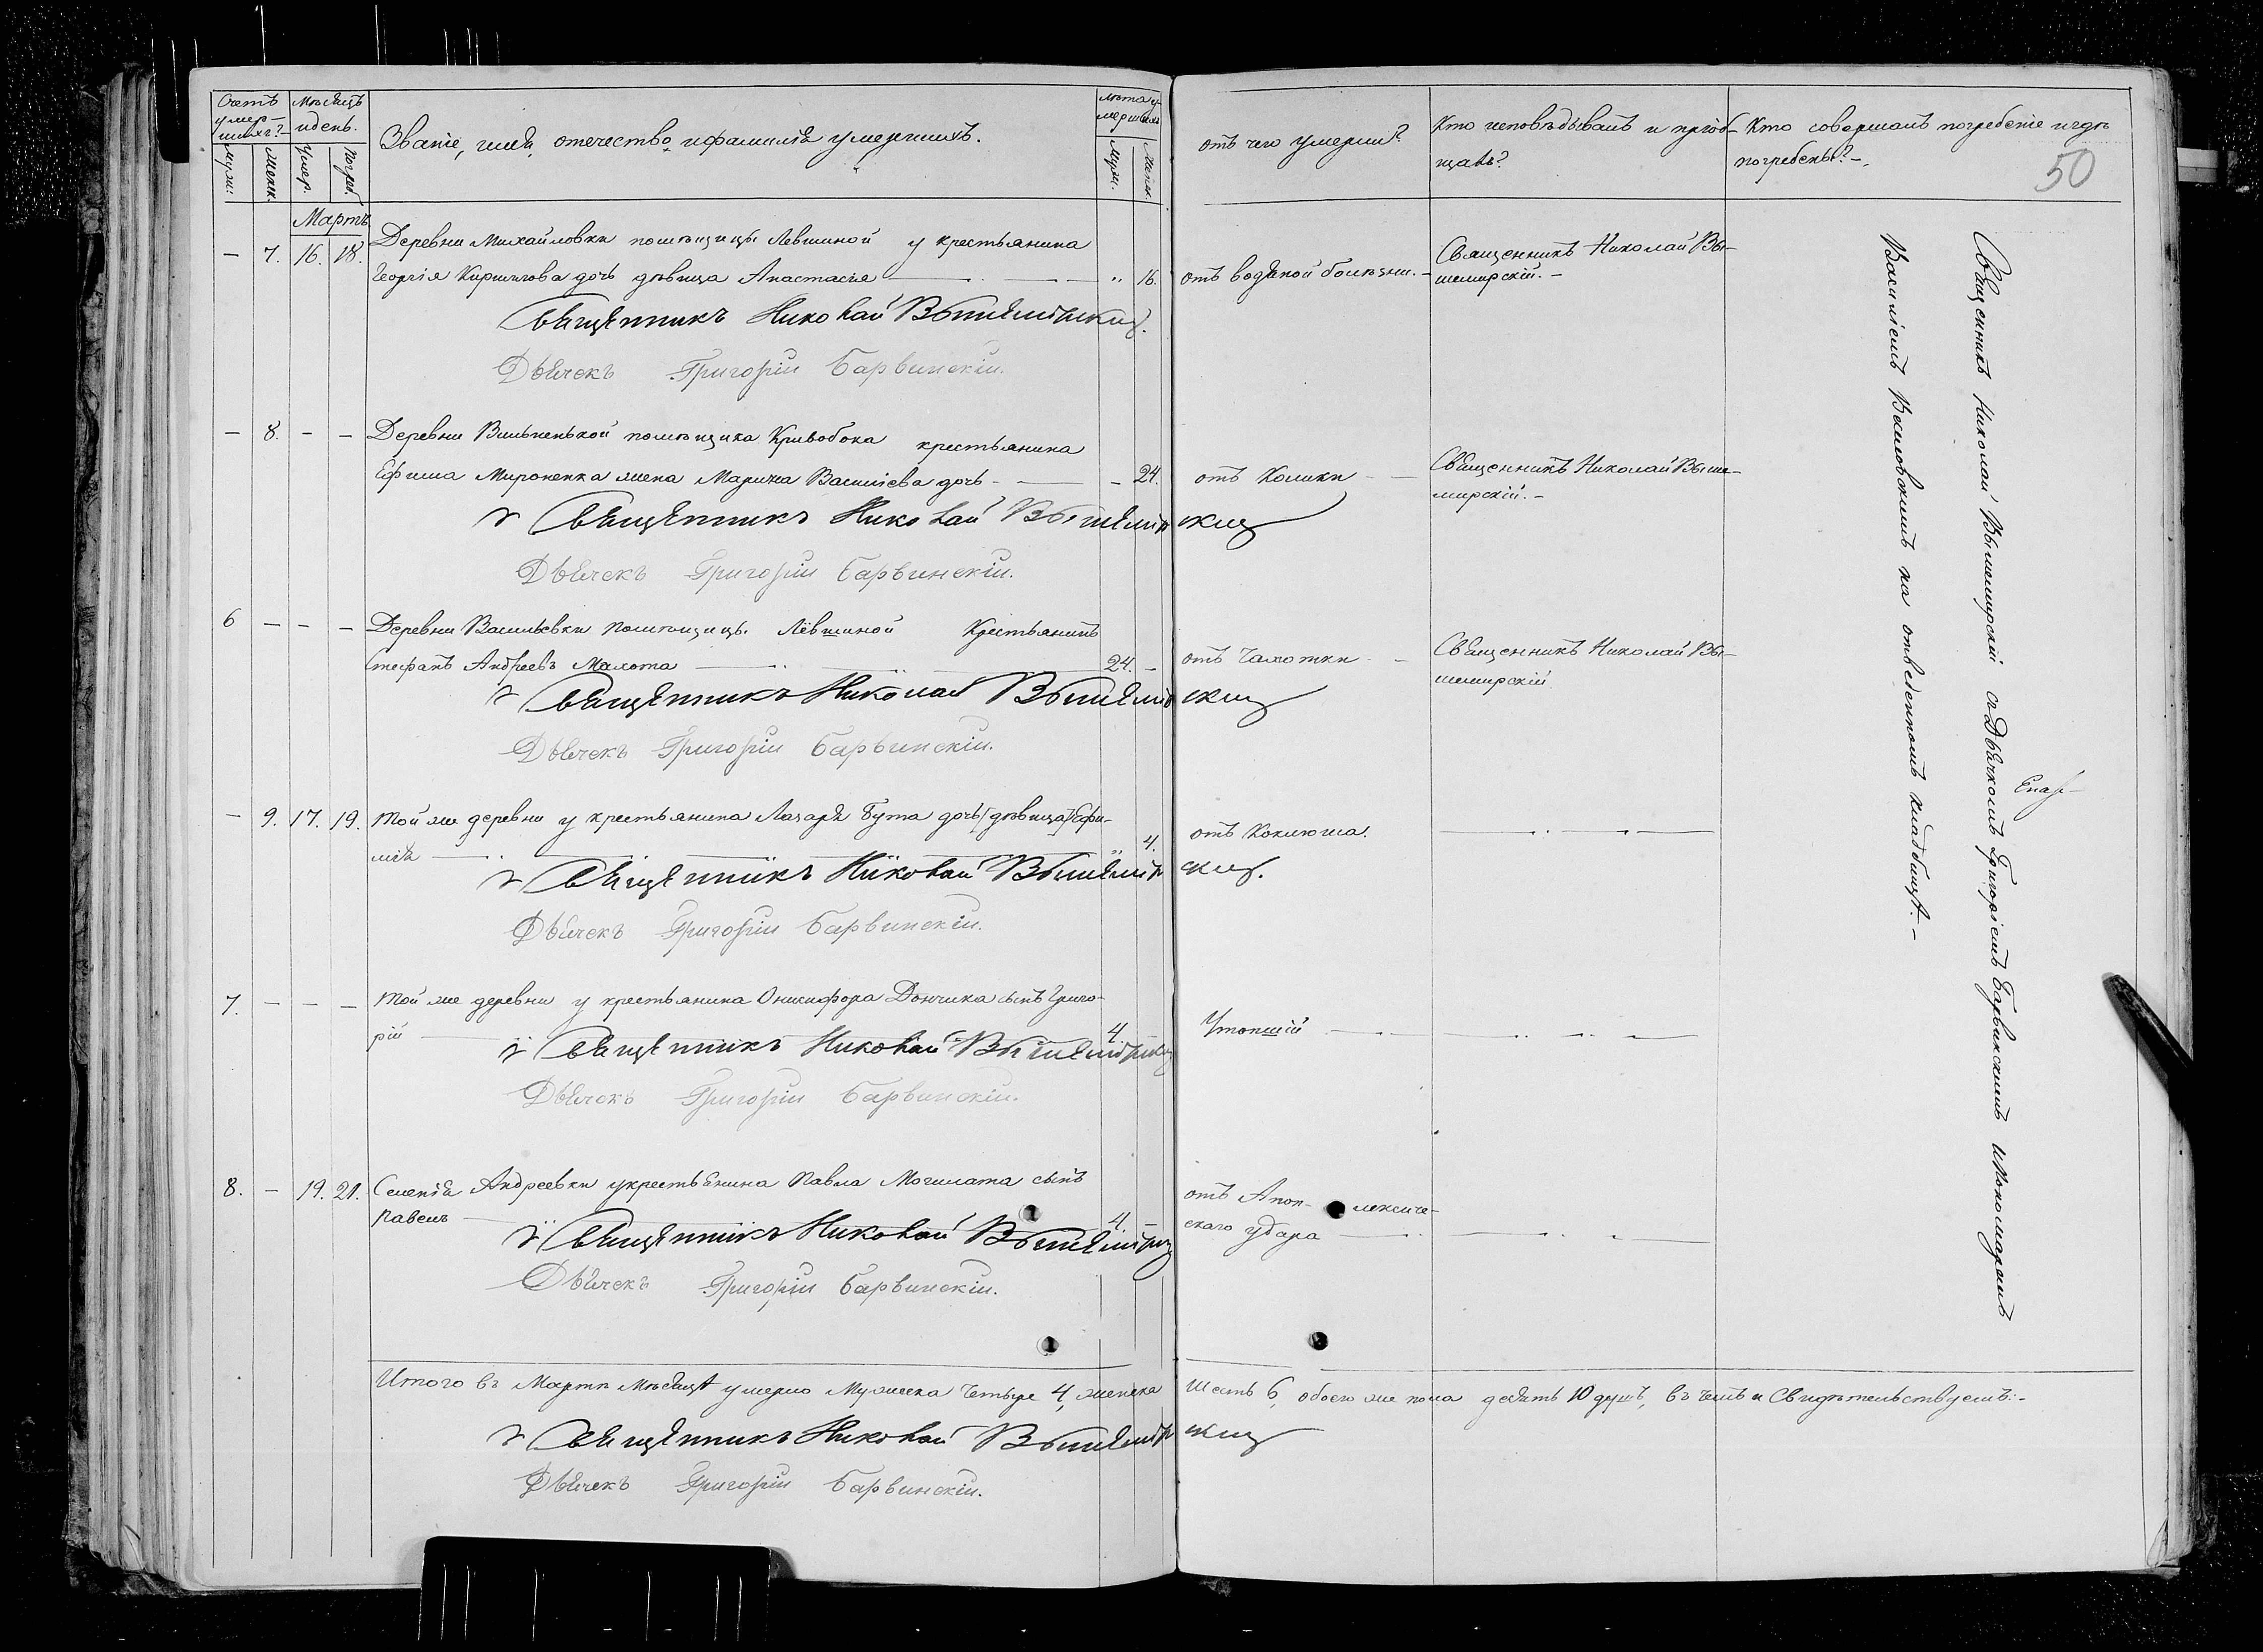 Счетъ умер-
шихъ?
Мѣсяцъ
и день.
Званіе, имя, отечество и фамилія умершихъ.
Лѣта у-
мершихъ
Муж:
Женск.
Умер.
Погреб.
Муж.
Женск.
отъ чего умерли?
Кто исповѣдывалъ и пріоб-
щалъ?
Кто совершалъ погребеніе и гдѣ
погребены? -
50
Мартъ
— 7. 16. 18. Деревни Михайловки помѣщицы Левшиной у крестьянина
Георгія Кириллова дочь дѣвица Анастасія — „ 16. отъ водяной болѣзни. —
Священникъ Николай Вы-
шемирскій. —
Священникъ Николай Вышемирскій.
Дьячекъ Григорій Барвинскій.
— 8. — — Деревни Вильненькой помѣщика Кривобока крестьянина
Ефима Мироненка жена Марина Василіева дочь — — 24. отъ Колики —
Священникъ Николай Выше-
мирскій. —
Священникъ Николай Вышемирскій
Дьячекъ Григорій Барвинскій.
6 — — — Деревни Васильевки помѣщицы Левшиной Крестьянинъ
Стефанъ Андреевъ Махота — 24. — отъ Чахотки —
Священникъ Николай Вы-
шемирскій
Священникъ Николай Вышемирскій
Дьячекъ Григорій Барвинскій.
— 9. 17. 19. Той же деревни у крестьянина Лазаря Бута дочь (дѣвица) Ефи-
мія — „ 4. отъ Коклюша.
Священникъ Николай Вышемирскій.
Дьячекъ Григорій Барвинскій.
7. — — — Той же деревни у крестьянина Онисифора Дончика сынъ Григо-
рій — 4 — Утопшій —
Священникъ Николай Вышемирскій
Дьячекъ Григорій Барвинскій.
8. — 19. 21. Селенія Андреевки у крестьянина Павла Могилата сынъ
Павелъ — 4. — отъ Апоплексиче-
скаго удара —
Священникъ Николай Вышемирскій
Дьячекъ Григорій Барвинскій.
Итого въ Мартѣ Мѣсяцѣ умерло Мужеска Четыре 4, женска Шесть 6, обоего же пола десять 10 душъ, въ чемъ и Свидѣтельствуемъ: -
Священникъ Николай Вышемирскій
Дьячекъ Григорій Барвинскій.
Священникъ Николай Вышемирскій съ Дьячкомъ Григоріемъ Барвинскимъ и Пономаремъ
на отведенномъ кладбищѣ. —